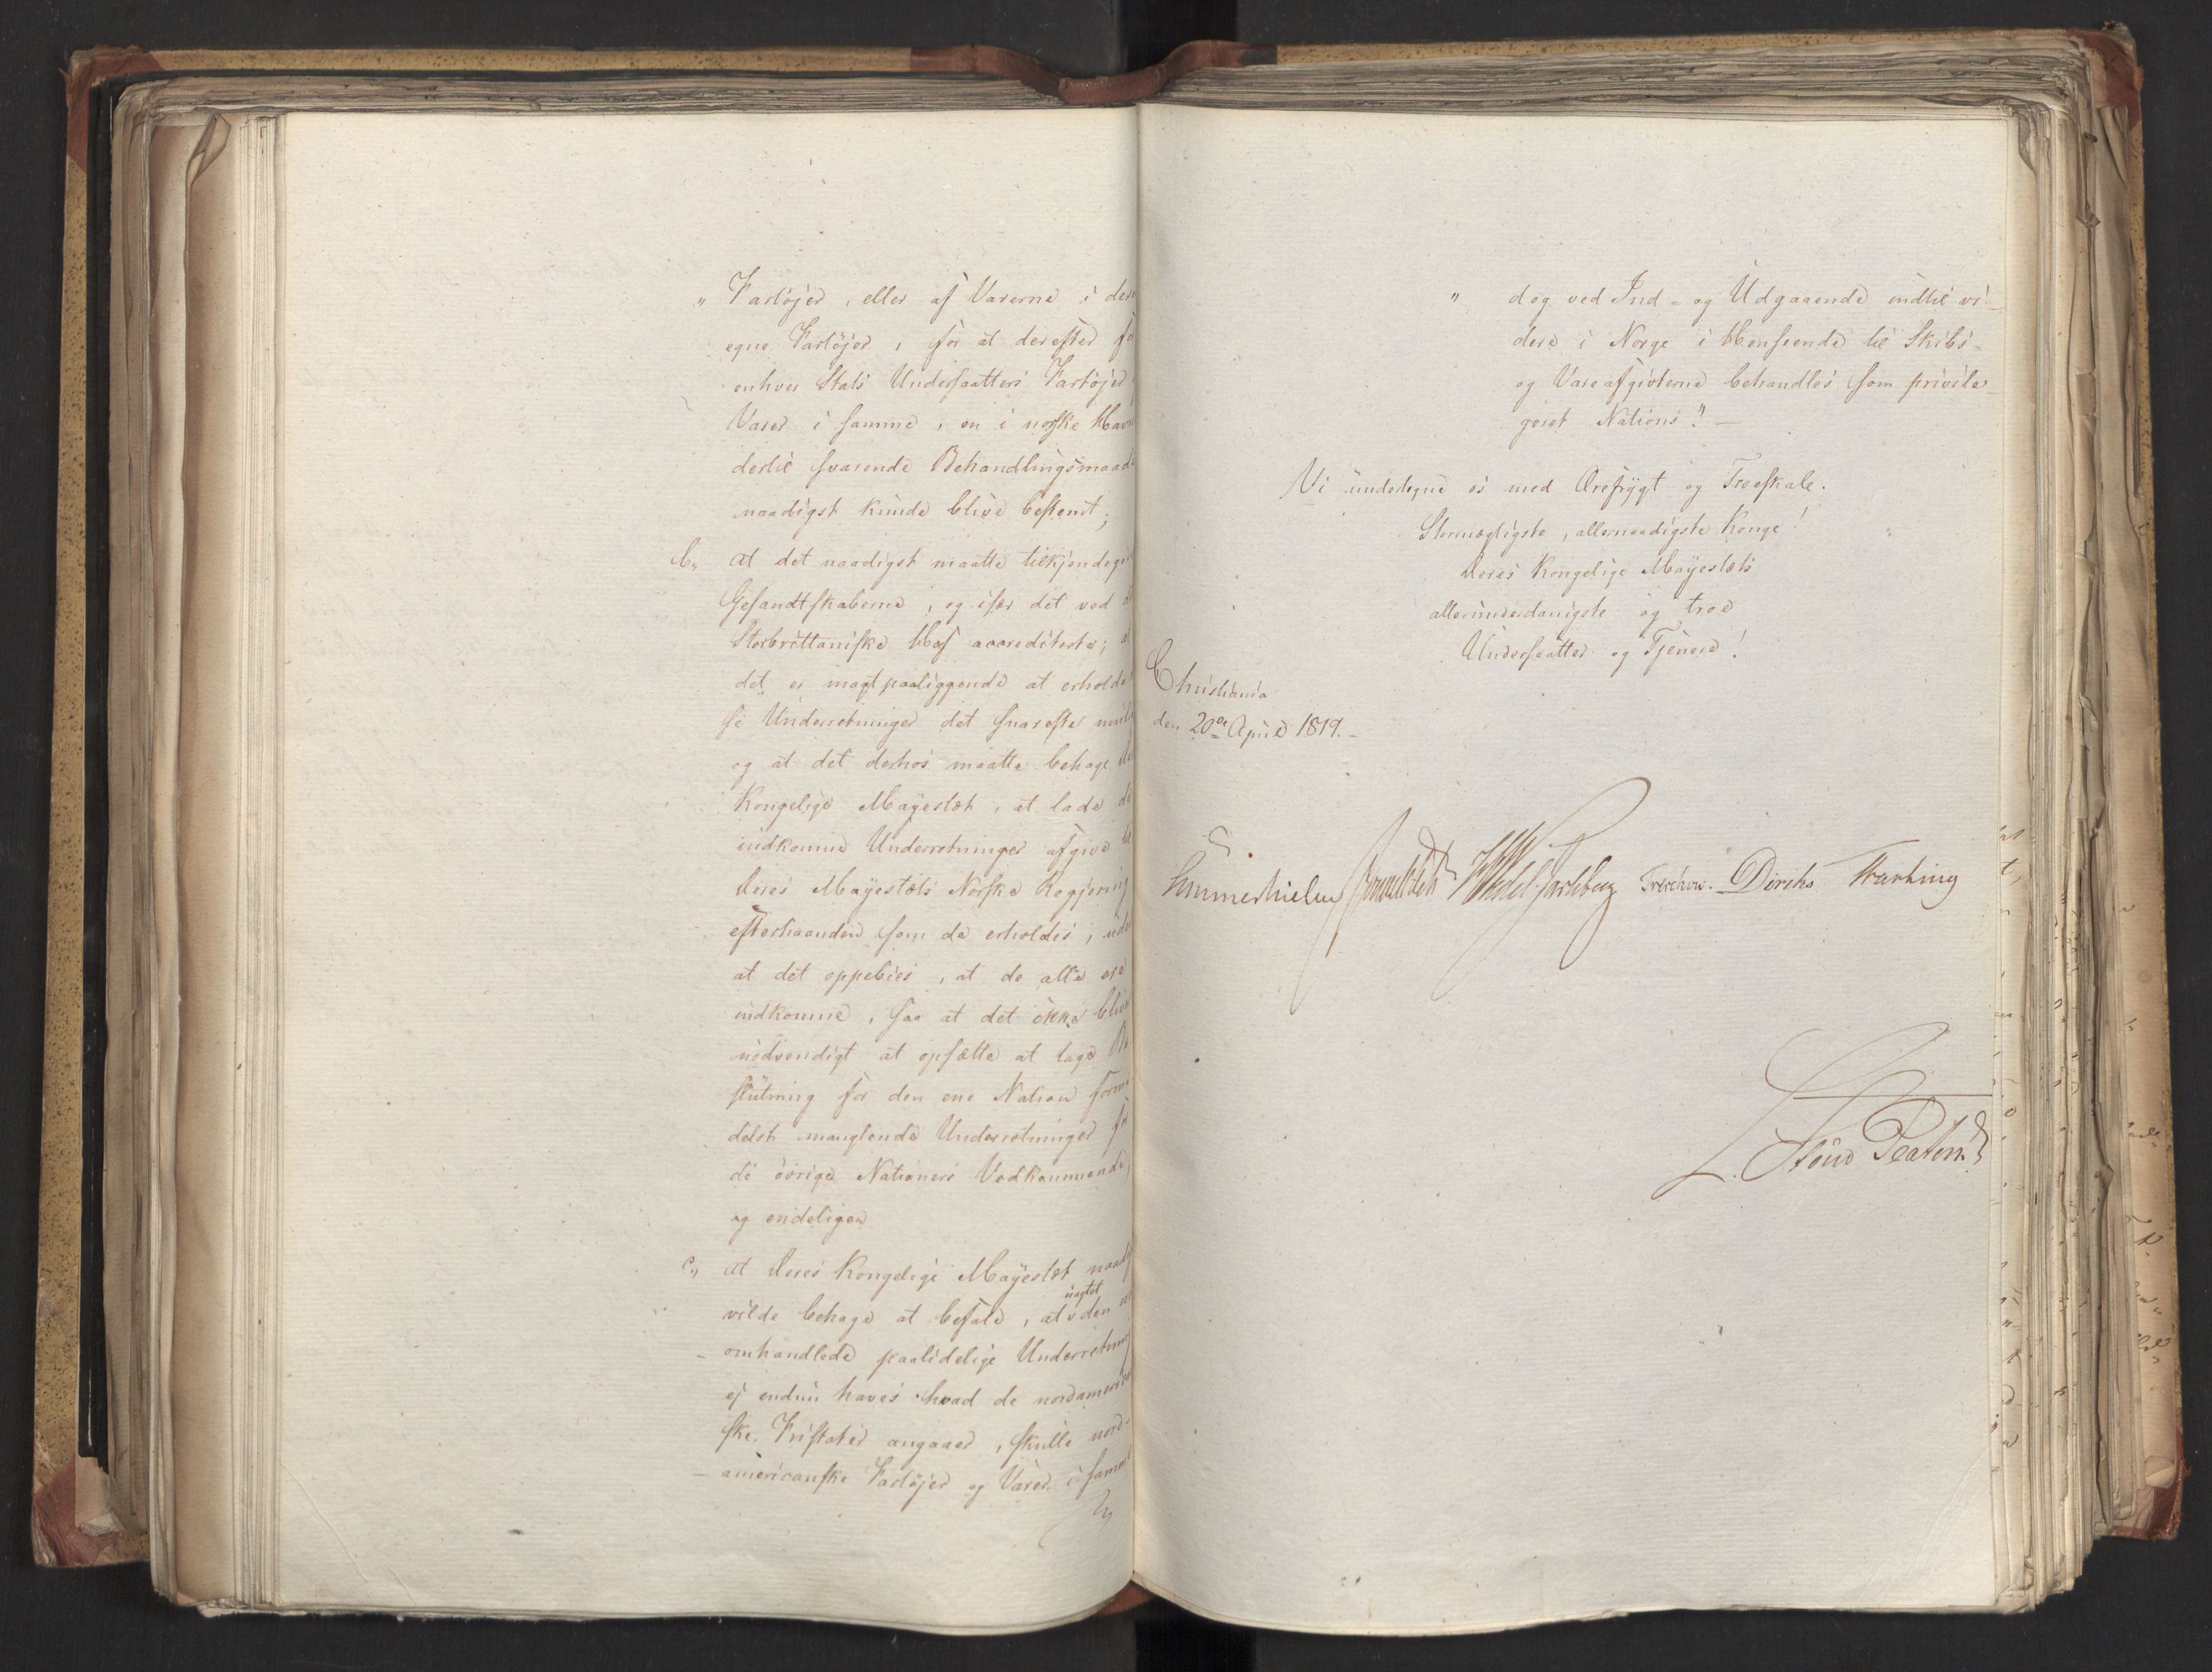 „ Fartøjer, eller af Varerne i der
egne Fartøjer, for at derefter
enhver Stats Undersaatters Fartøjer
Varer i samme, en i norske Havn
dertil svarende Behandlingsmaade
naadigst kunde blive bestemt;
b„ at det naadigst maatte tilkjendegi
Gesandtskaberne, og især det ved
Storbrittaniske Hof accrediterte;
det er magtpaaliggende at erholde
se Underretninger det snareste
og at det derhos maatte behage
Kongelige Mayestæt, at lade di
indkomne Underretninger afgive
Deres Mayestæts Norske Regjering
efterhaanden som de erholdes, ude
at det oppebies, at de alle ere
indkomne, saa at det ikke blive
nødvendigt at opsætte at tage Be
slutning for den ene Nation forme
delst manglende Underretninger for
de øvrige Nationers Vedkommende,
og endeligen
c„ at Deres Kongelige Mayestæt naad
uagtet
vilde behage at befale, at den
omhandlede paalidelige Underretning
ej endnu haves hvad de nordameri
ske Fristater angaaer, skulle nord-
americanske Fartøjer og Varer i samme
„ dog ved Ind- og Udgaaende indtil vi-
dere i Norge i Henseende til Skibs-
og Vareafgivterne behandles som privile-
geret Nations". —
Vi undertegne os med Ærefrygt og Troeskab.
Stormægtigste, allernaadigste Konge!
Deres Kongelige Mayestæts
allerunderdanigste og troe
Undersaatter og Tjenere!
Christiania
den 20de April 1819. –
Sommerhielm HWedel-Jarlsberg Treschow. Diriks Krag